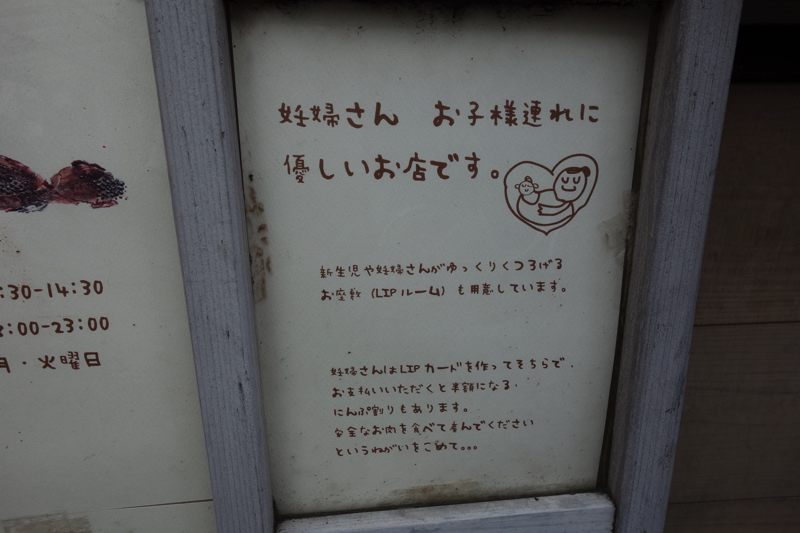 :30-14:30
:00-23:00
月・火曜日
妊婦さん お子様連れに
優しいお店です。
新生児や妊婦さんがゆっくりくつろげる
お座敷(LIPルーム)も用意しています。
妊婦さんはLIPカードを作ってそちらで、
お支払いいただくと半額になる
にんぷ割りもあります。
安全なお肉を食べて産んでください
というねがいをこめて。。。